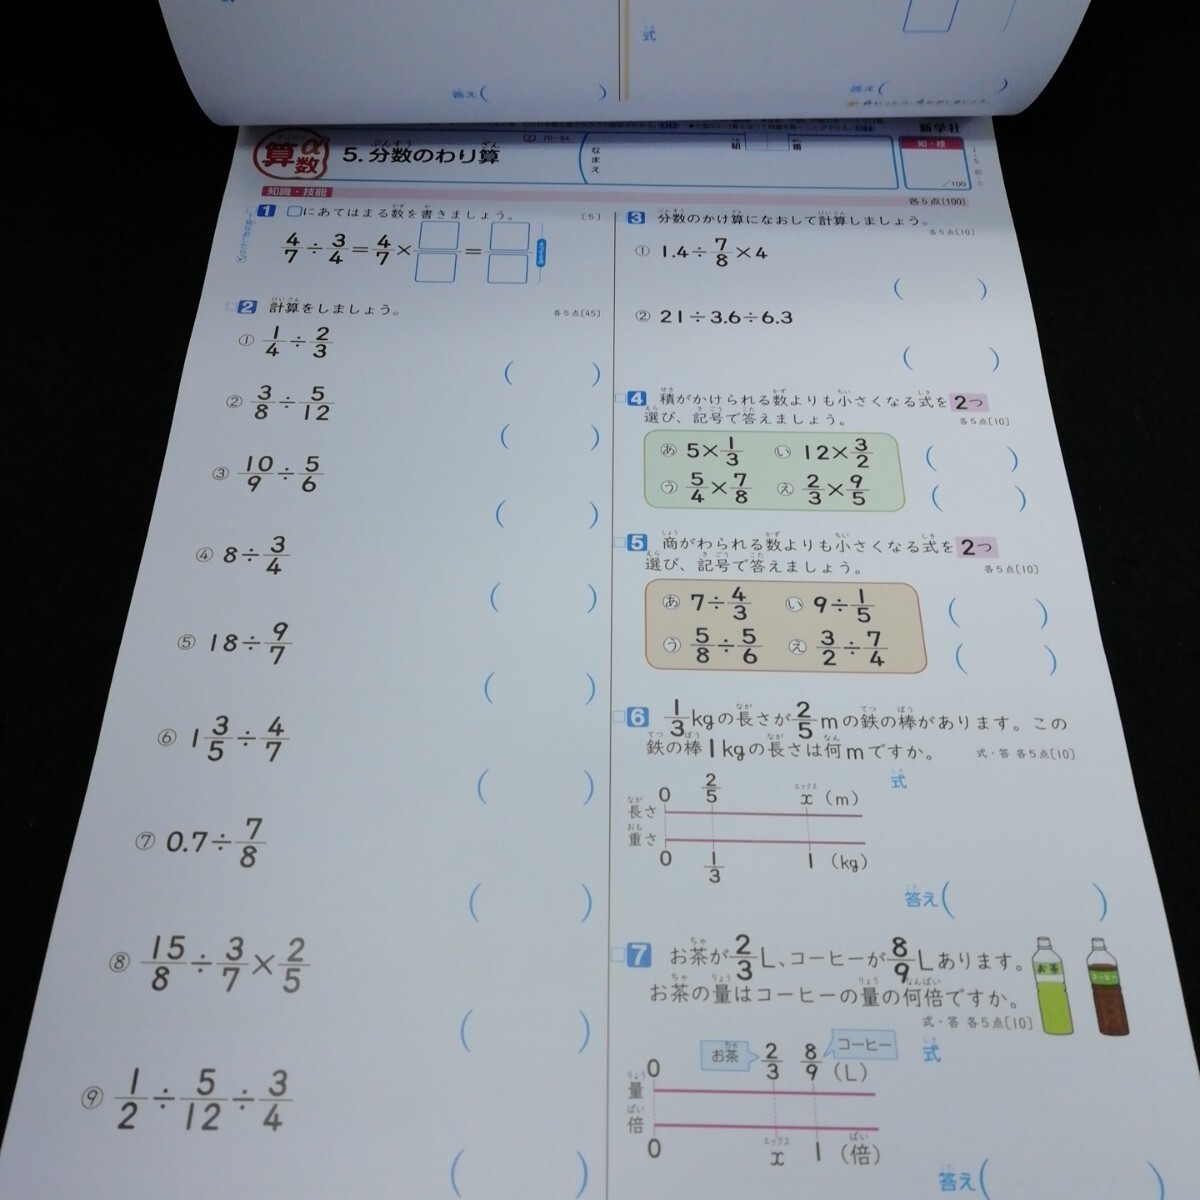 式
答え( )
答え( )
新学社
算数 α
70~84
5.分数のわり算
ぶんすう ざん
なまえ
組 番
知・技
/100
知識・技能
各5点[100]
1 □にあてはまる数を書きましょう。 [5]
4/7÷3/4=4/7×□/□=□/□
2 計算をしましょう。 各5点[45]
① 1/4÷2/3
( )
② 3/8÷5/12
( )
③ 10/9÷5/6
( )
④ 8÷3/4
( )
⑤ 18÷9/7
( )
⑥ 1 3/5÷4/7
( )
⑦ 0.7÷7/8
( )
⑧ 15/8÷3/7×2/5
( )
⑨ 1/2÷5/12÷3/4
( )
3 分数のかけ算になおして計算しましょう。
各5点[10]
① 1.4÷7/8×4
( )
② 21÷3.6÷6.3
( )
4 積がかけられる数よりも小さくなる式を2つ
選び、記号で答えましょう。 各5点[10]
あ 5×1/3 い 12×3/2 ( )
う 5/4×7/8 え 2/3×9/5 ( )
5 商がわられる数よりも小さくなる式を2つ
選び、記号で答えましょう。 各5点[10]
あ 7÷4/3 い 9÷1/5 ( )
う 5/8÷5/6 え 3/2÷7/4 ( )
6 1/3kgの長さが2/5mの鉄の棒があります。この
鉄の棒1kgの長さは何mですか。 式・答 各5点[10]
式
0 2/5 x (m)
長さ
重さ
0 1/3 1 (kg)
答え( )
7 お茶が2/3L、コーヒーが8/9Lあります。
お茶の量はコーヒーの量の何倍ですか。
式・答 各5点[10]
お茶
コーヒー
式
お茶 コーヒー
0 2/3 8/9 (L)
量
倍
0 x 1 (倍)
答え( )